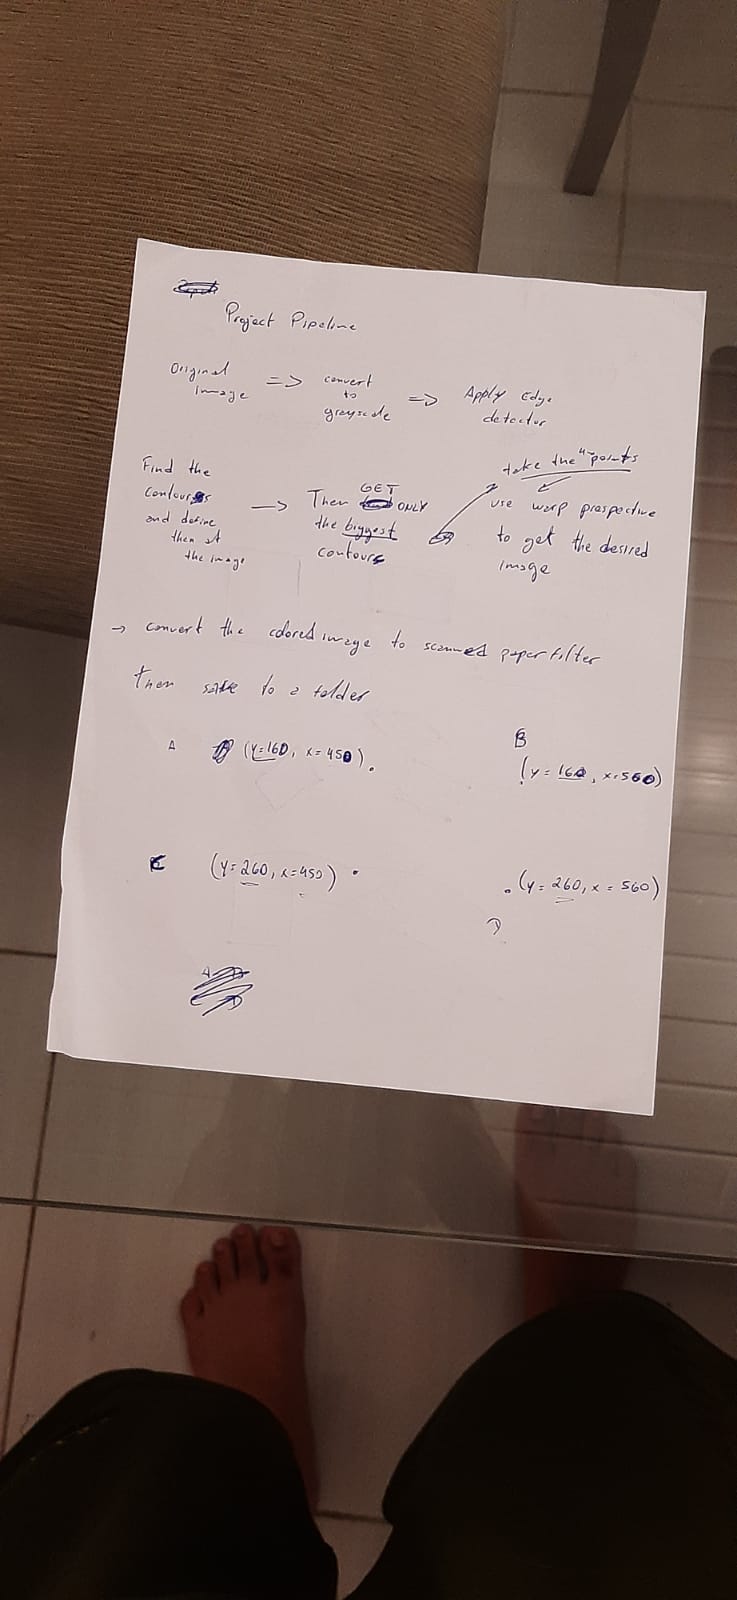 Project Pipeline
Original => convert => Apply Edge
image to detector
grayscale
Find the
contours
and define
then at
the image
-> Then GET ONLY
the biggest
contours
take the 4 points
use warp prespective
to get the desired
image
-> convert the colored image to scanned paper filter
Then save to a folder
A (y=160, x=450).
B
(y=160, x=560)
C (y=260, x=450) .
. (y=260, x=560)